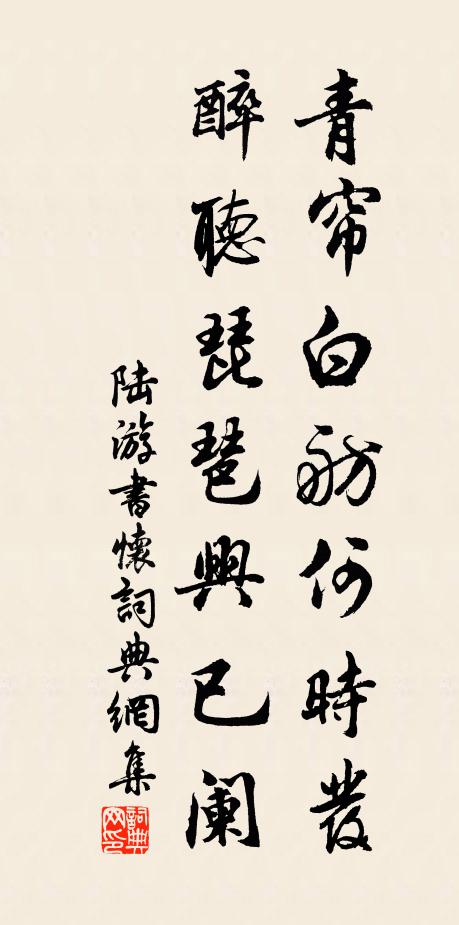 青帘白舫何時發
醉聽琵琶興已闌
陆游書懷詞典網集
詞典网印